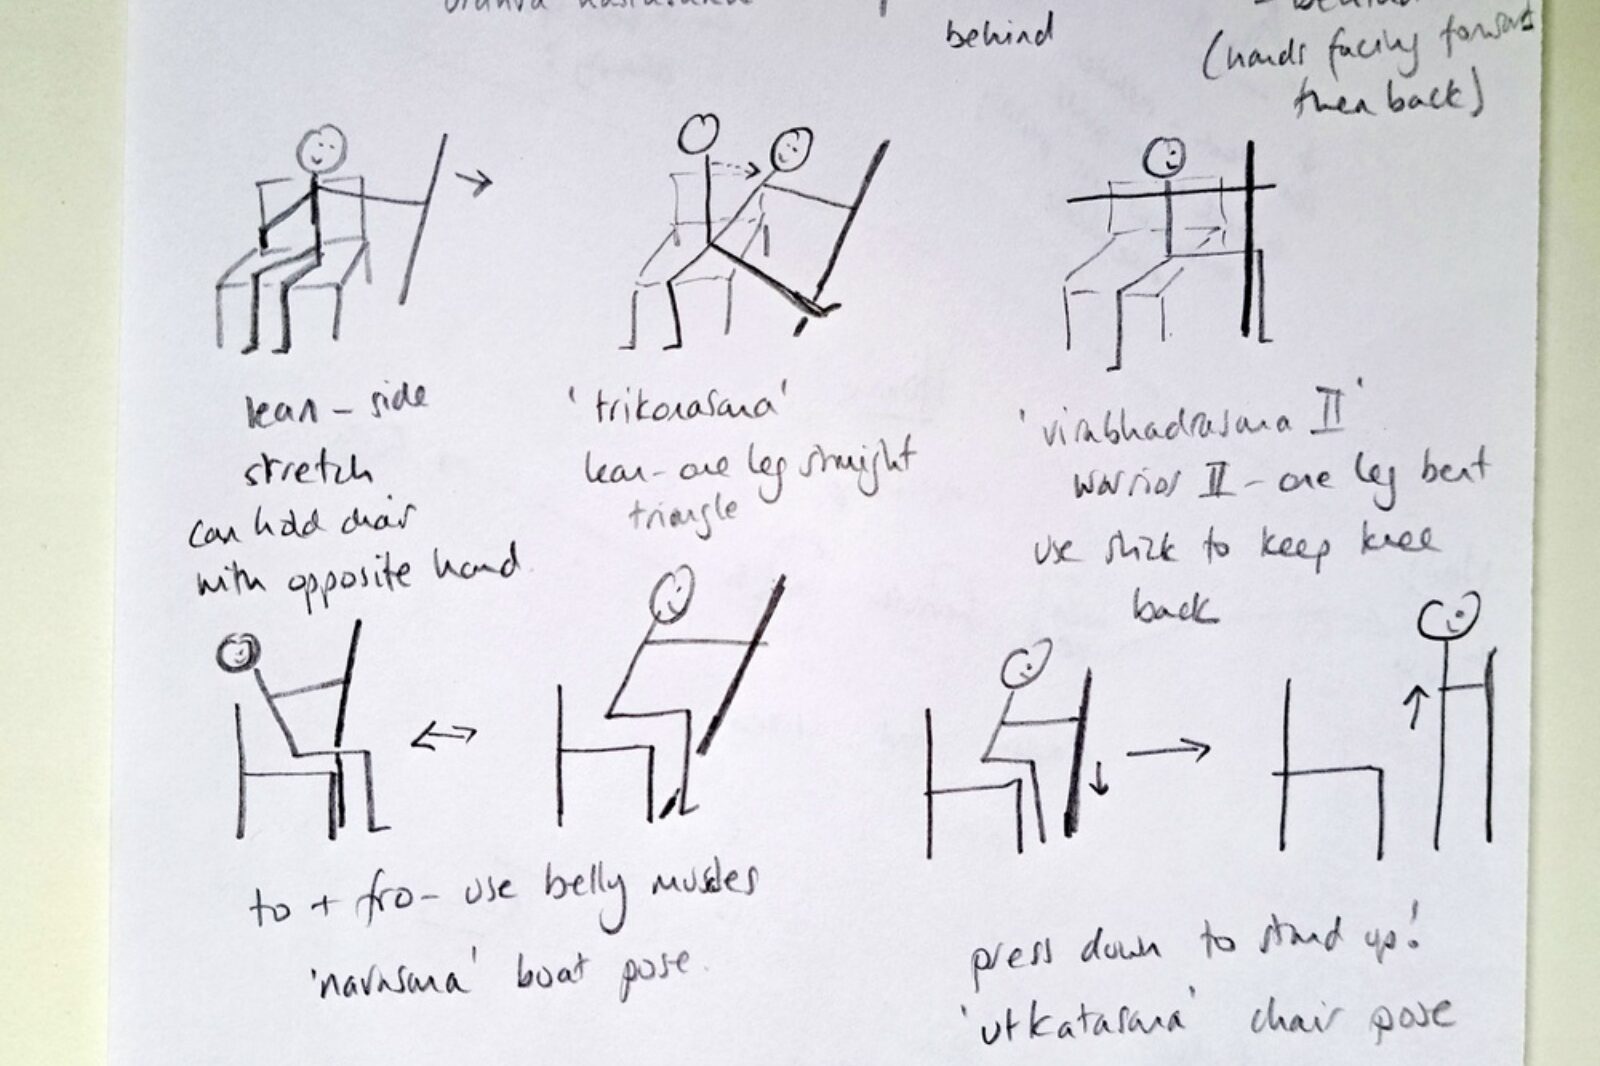 behind
(hands facing forward
then back)
lean - side
stretch
can hold chair
with opposite hand.
'trikonasana'
lean - one leg straight
triangle
'virabhadrasana II'
warrior II - one leg bent
use stick to keep knee
back
to + fro - use belly muscles
'navasana' boat pose.
press down to stand up!
'utkatasana' chair pose